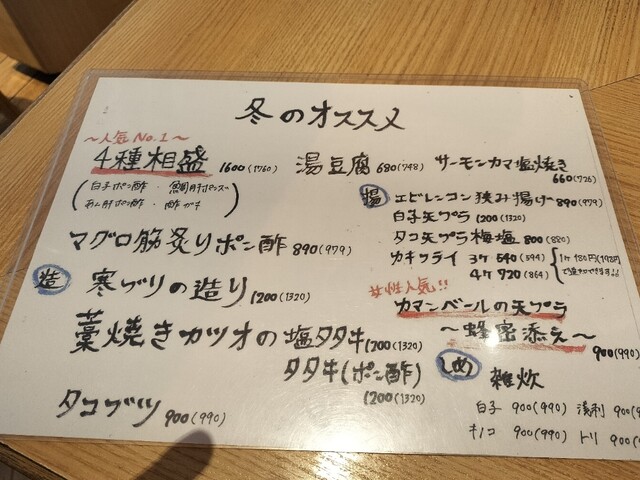 冬のオススメ
～人気No.1～
4種相盛 1600(1760)
(白子ポン酢・鯛肝ポン酢
あん肝ポン酢・酢ガキ)
マグロ筋炙りポン酢 890(979)
造 寒ブリの造り 1200(1320)
藁焼きカツオの塩タタキ 1200(1320)
タタキ(ポン酢)
1200(1320)
タコブツ 900(990)
湯豆腐 680(748)
サーモンカマ塩焼き
660(726)
揚 エビレンコン挟み揚げ 890(979)
白子天プラ 1200(1320)
タコ天プラ梅塩 800(880)
カキフライ 3ケ 540(594)
4ケ 720(864)
1ケ 180円(198円)
で追加できます!!
女性人気!!
カマンベールの天プラ
～蜂蜜添え～
900(990)
しめ 雑炊
白子 900(990) 浅利 900(9
キノコ 900(990) トリ 900(9